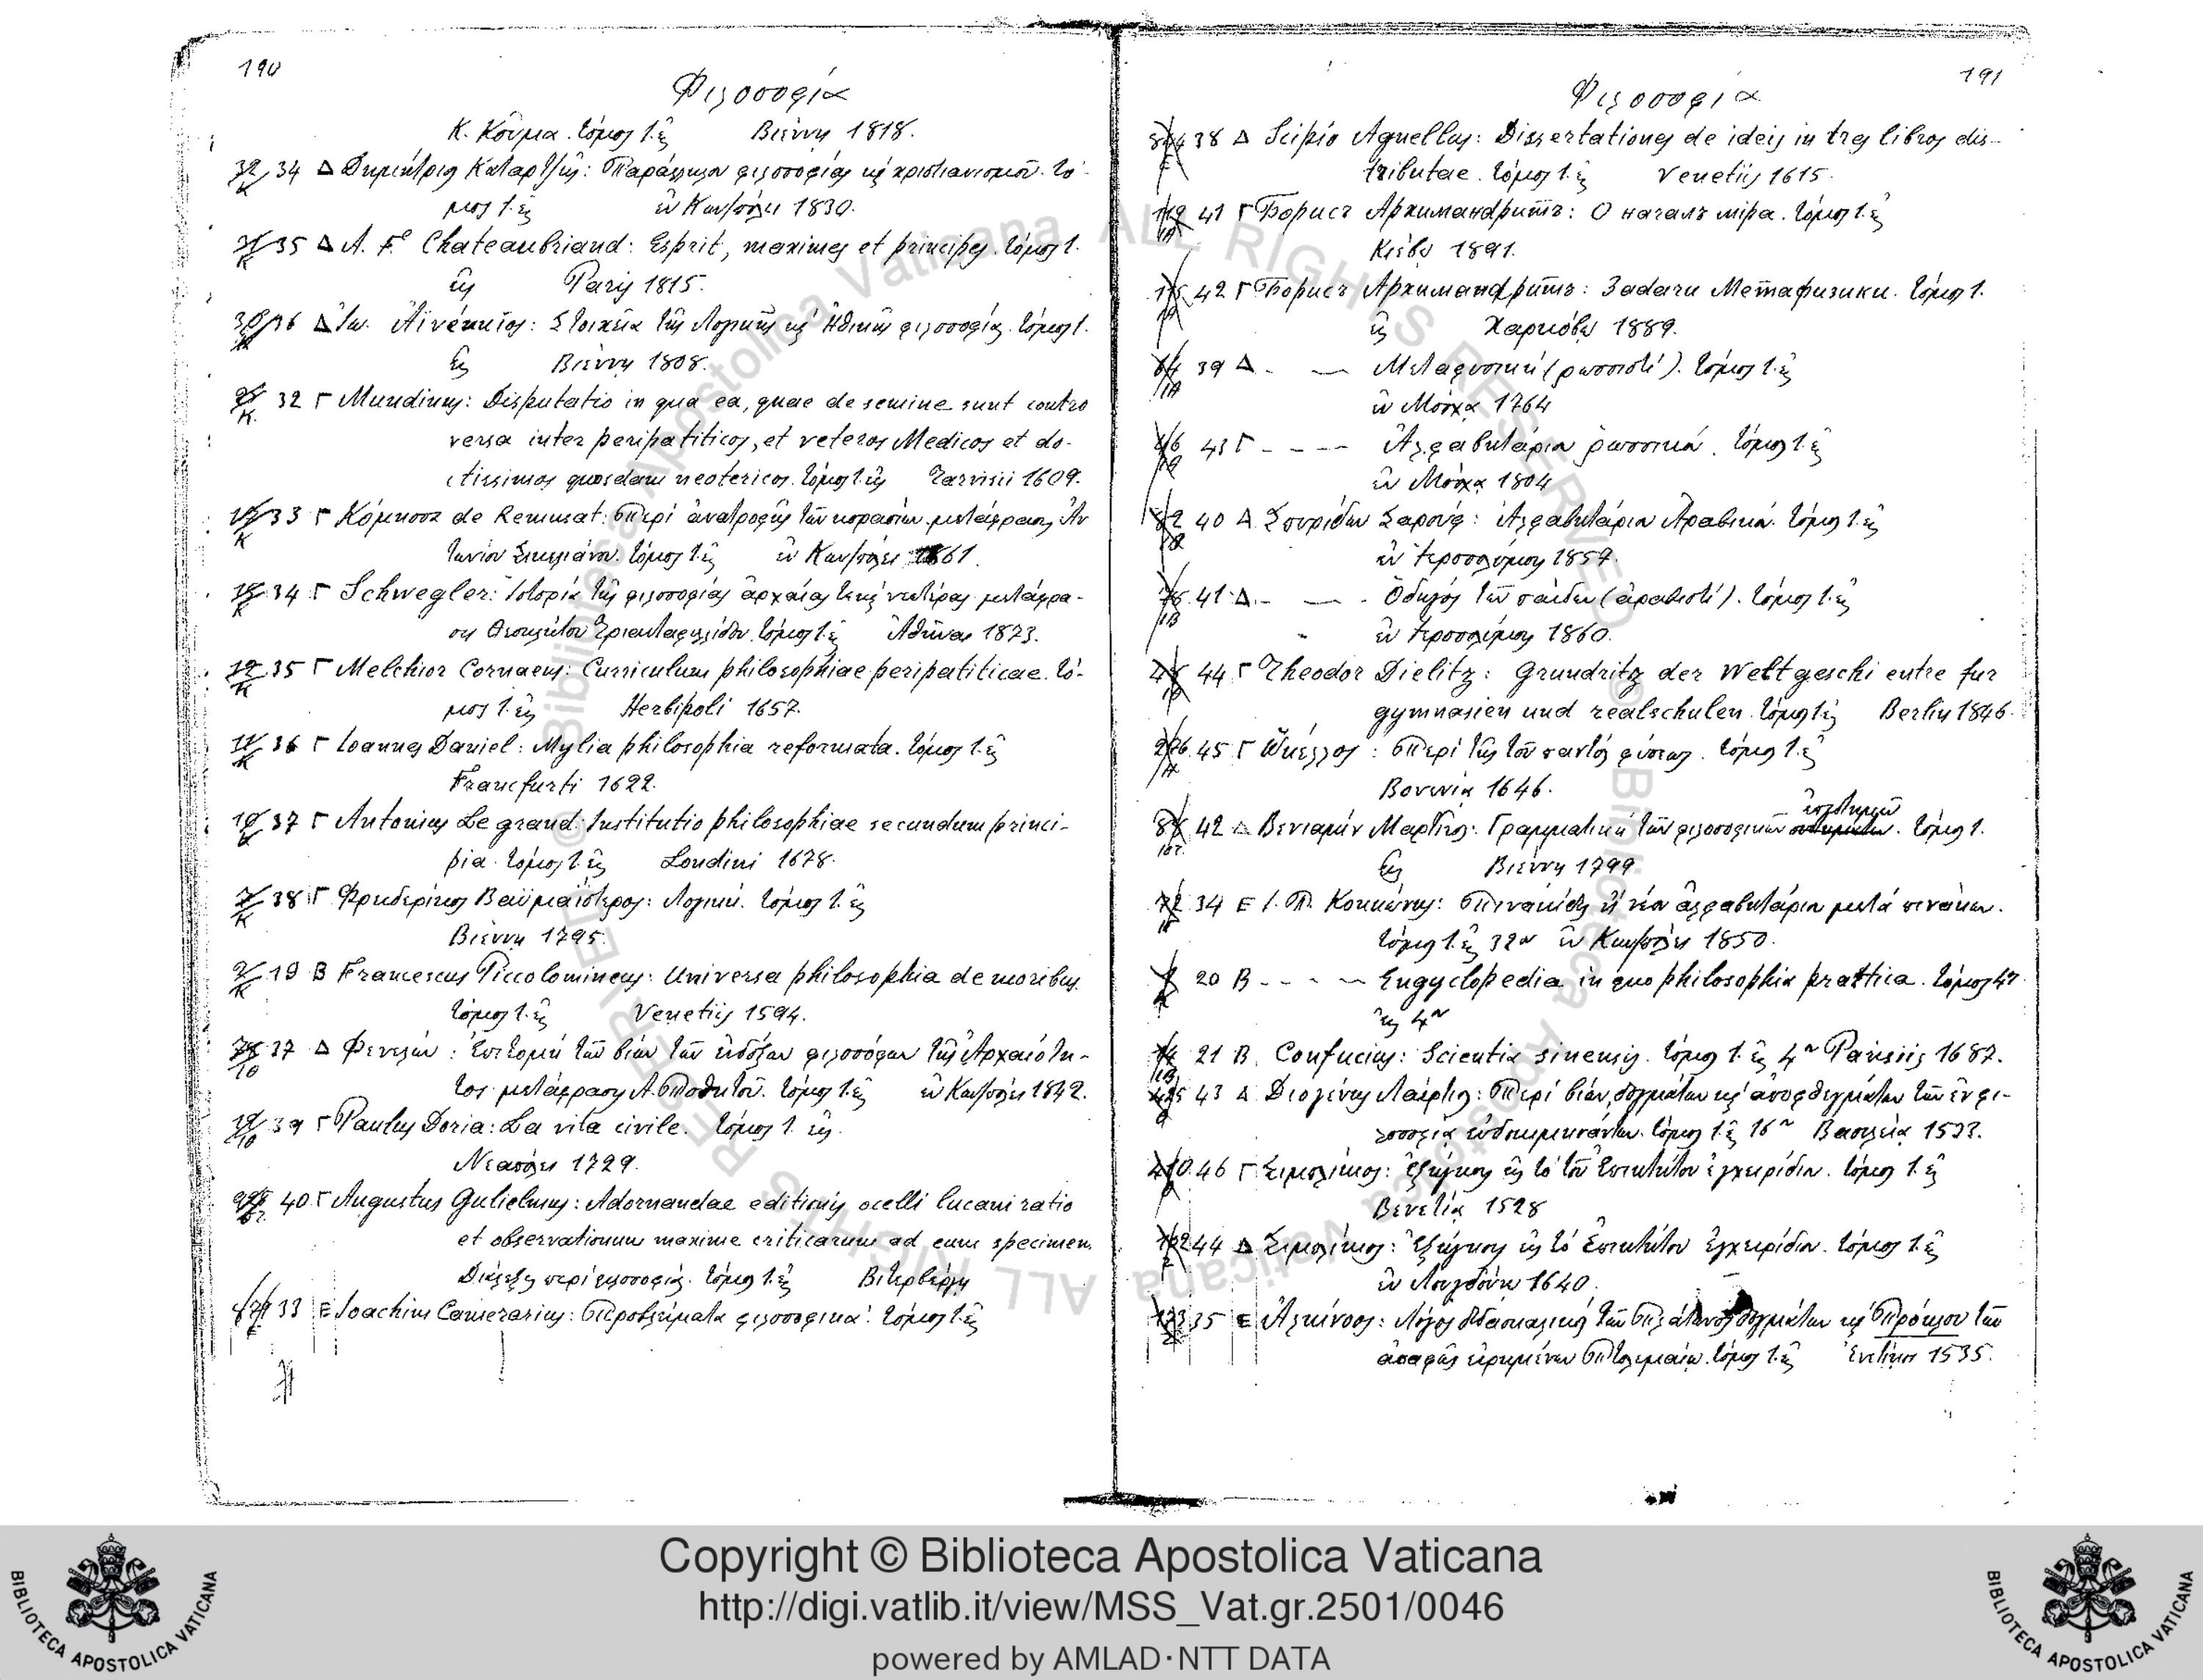 190
Φιλοσοφία
Κ. Κούμα. τόμος 1. εἰς Βιέννη 1818.
34 Δ Δημήτριος Καταρτζῆς: Παράλληλον φιλοσοφίας κ̀ χριστιανισμοῦ. τό-
μος 1. εἰς ἐν Κων/πόλει 1830.
35 Δ A. F. Chateaubriand: Esprit, maximes et principes. τόμος 1.
εἰς Paris 1815.
36 Δ Ἰω. Αἰνέκκιος: Στοιχεῖα τῆς Λογικῆς κ̀ Ἠθικῆς φιλοσοφίας. τόμος 1.
εἰς Βιέννη 1808.
32 Γ Mundinus: Disputatio in qua ea, quae de semine sunt contro
versa inter peripatiticos, et veteros Medicos et do-
ctissimos quosdam neotericos. τόμος 1. εἰς Tarvisii 1609.
33 Γ Κόμησσα de Remusat: Περί ἀνατροφῆς τῶν κορασίων μετάφρασις Ἀν
τωνίου Σικελιάνου. τόμος 1. εἰς ἐν Κων/πόλει 1861.
34 Γ Schwegler: Ἱστορία τῆς φιλοσοφίας ἀρχαίας τε κ̀ νεωτέρας μετάφρα-
σις Θεοκλήτου Τριανταφυλλίδου. τόμος 1. εἰς Ἀθῆναι 1873.
35 Γ Melchior Cornaeus: Curriculum philosophiae peripatiticae. τό-
μος 1. εἰς Herbipoli 1657.
36 Γ Ioannes Daniel: Mylia philosophia reformata. τόμος 1. εἰς
Francfurti 1622.
37 Γ Antonius Le grand: Institutio philosophiae secundum princi-
pia. τόμος 1. εἰς Londini 1678.
38 Γ Φρειδερίκος Βαϋμαΐστερος: Λογική. τόμος 1. εἰς
Βιέννη 1795.
19 Β Francescus Piccolomineus: Universa philosophia de moribus
τόμος 1. εἰς Venetiis 1594.
37 Δ Φενελών: Ἐπιτομή τῶν βίων τῶν ἐνδόξων φιλοσόφων τῆς Ἀρχαιότη-
τος μετάφρασις Α. Ποθητοῦ. τόμος 1. εἰς ἐν Κων/πόλει 1842.
39 Γ Paulus Doria: La vita civile. τόμος 1. εἰς
Νεαπόλει 1729.
40 Γ Augustus Gulielmus: Adornandae editionis ocelli lucani ratio
et observationum maxime criticarum ad eum specimen.
Διάλεξις περί φιλοσοφίας. τόμος 1. εἰς Βιτεμβέργη
33 Ε Ioachim Camerarius: Προβλήματα φιλοσοφικά. τόμος 1. εἰς
191
Φιλοσοφία
38 Δ Scipio Agnellus: Dissertationes de ideis in tres libros dis-
tributae. τόμος 1. εἰς Venetiis 1615.
41 Γ Борисъ Архимандритъ: О началѣ міра. τόμος 1. εἰς
Κιέβῳ 1891.
42 Γ Борисъ Архимандритъ: Задачи Метафизики. τόμος 1.
εἰς Χαρκόβῳ 1889.
39 Δ - — Μεταφυσική (ρωσσιστί). τόμος 1. εἰς
ἐν Μόσχᾳ 1764
43 Γ - - - - Ἀλφαβητάριον ρωσσικόν. τόμος 1. εἰς
ἐν Μόσχᾳ 1804
40 Δ Σπυρίδων Σαρούφ: Ἀλφαβητάριον Ἀραβικόν. τόμος 1. εἰς
ἐν Ἱεροσολύμοις 1857.
41 Δ - — - Ὁδηγός τῶν παίδων (ἀραβιστί). τόμος 1. εἰς
ἐν Ἱεροσολύμοις 1860.
44 Γ Theodor Dielitz: Grundritz der Weltgeschi entre fur
gymnasien und realschulen. τόμος 1. εἰς Berlin 1846.
45 Γ Ὤκελλος: Περί τῆς τοῦ παντός φύσεως. τόμος 1. εἰς
Βονωνίᾳ 1646.
ἐπιστημῶν
42 Δ Βενιαμίν Μαρτῖνος: Γραμματική τῶν φιλοσοφικῶν. τόμος 1.
εἰς Βιέννη 1799
34 Ε Ι. Π. Κοκκώνης: Πινακίδες ἤ νέον ἀλφαβητάριον μετά πινάκων.
τόμος 1. εἰς 32ον ἐν Κων/πόλει 1850.
20 Β - - - — Engyclopedia in quo philosophia prattica. τόμος 47
εἰς 4ον
21 Β. Confucius: Scientia sinensis. τόμος 1. εἰς 4ον Parisiis 1687.
43 Δ Διογένης Λαέρτιος: Περί βίων, δογμάτων κ̀ ἀποφθεγμάτων τῶν ἐν φι-
λοσοφίᾳ εὐδοκιμησάντων. τόμος 1. εἰς 16ον Βασιλείᾳ 1533.
46 Γ Σιμπλίκιος: Ἐξήγησις εἰς τό τοῦ Ἐπικτήτου ἐγχειρίδιον. τόμος 1. εἰς
Βενετίᾳ 1528
44 Δ Σιμπλίκιος: Ἐξήγησις εἰς τό Ἐπικτήτου ἐγχειρίδιον. τόμος 1. εἰς
ἐν Λουγδούνῳ 1640.
35 Ε Ἀλκίνοος: Λόγος διδασκαλικός τῶν Πλάτωνος δογμάτων κ̀ Πρόκλου τῶν
ἀσαφῶς εἰρημένων Πτολεμαίῳ. τόμος 1. εἰς Ἐνετίῃσι 1535.
Copyright © Biblioteca Apostolica Vaticana
http://digi.vatlib.it/view/MSS_Vat.gr.2501/0046
powered by AMLAD·NTT DATA
BIBLIOTECA APOSTOLICA VATICANA
BIBLIOTECA APOSTOLICA VATICANA